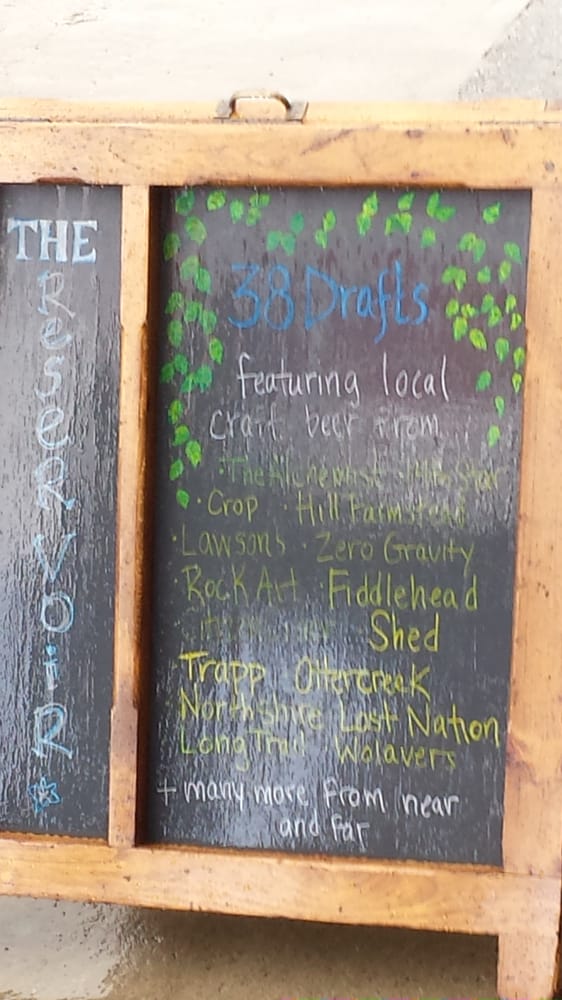 THE
Reservoir
38 Drafts
featuring local
craft beer from
· The Alchemist ·
· Crop · Hill Farmstead
· Lawsons · Zero Gravity
· Rock Art · Fiddlehead
Shed
Trapp Ottercreek
Northshire Lost Nation
Long Trail Wolavers
+ many more from near
and far